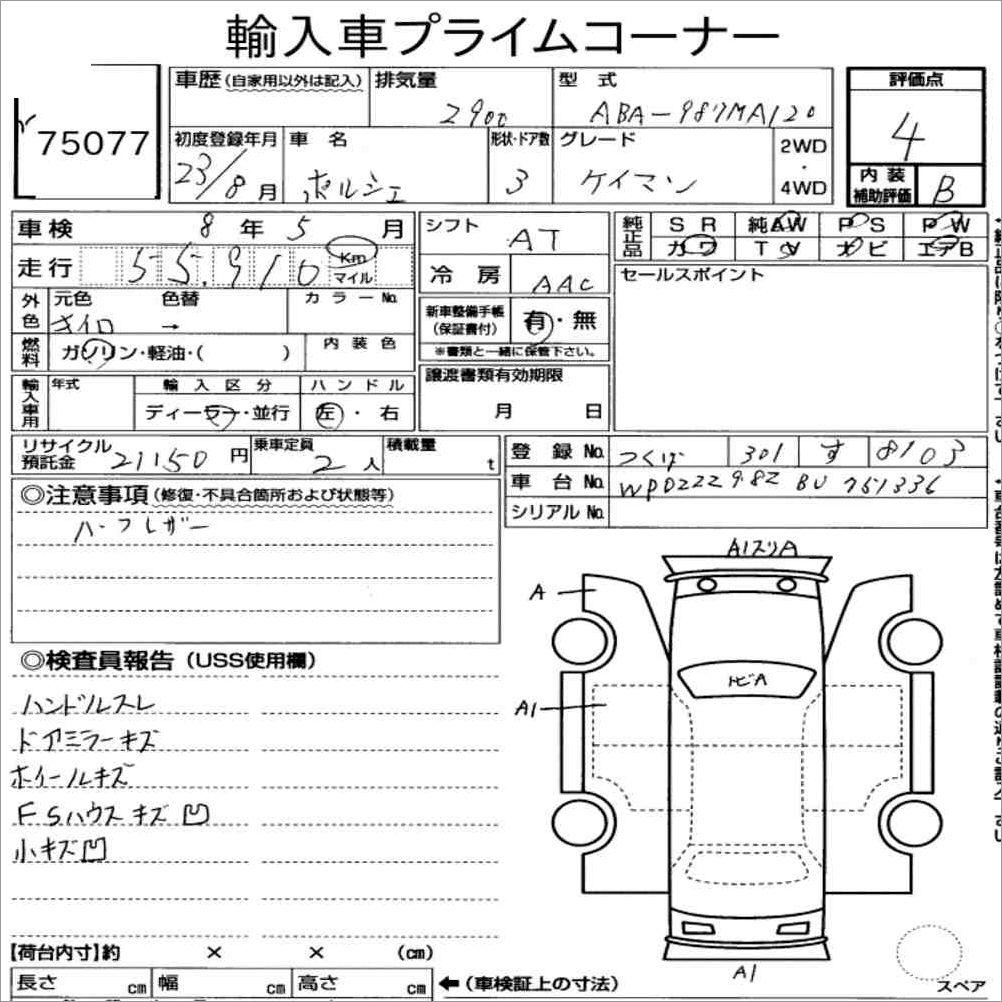 輸入車プライムコーナー
75077
車歴(自家用以外は記入) 排気量 型式 評価点
2900 ABA-987MA120 4
初度登録年月 車名 形状・ドア数 グレード 2WD・4WD
23/8月 ポルシェ 3 ケイマン
内装補助評価 B
車検 8年5月 シフト AT
純正品 SR 純AW PS PW
カワ TV ナビ エアB
走行 55,910 Km マイル
冷房 AAC
セールスポイント
外色 元色 色替 カラーNo.
→
新車整備手帳(保証書付) 有・無
※書類と一緒に保管下さい。
燃料 ガソリン・軽油・( ) 内装色
譲渡書類有効期限
月 日
輸入車用 年式 輸入区分 ハンドル
ディーラー・並行 左・右
リサイクル預託金 21150円 乗車定員 2人 積載量 t
登録No. つくば 301 す 8103
車台No. WPDZZZ98Z BU 751336
シリアルNo.
◎注意事項(修復・不具合箇所および状態等)
ハーフレザー
A1スリA
A
トビA
A1
A1
◎検査員報告(USS使用欄)
ハンドルスレ
ドアミラーキズ
ホイールキズ
FSハウスキズ凹
小キズ凹
【荷台内寸】約 × × (cm)
長さ cm 幅 cm 高さ cm ←(車検証上の寸法)
スペア